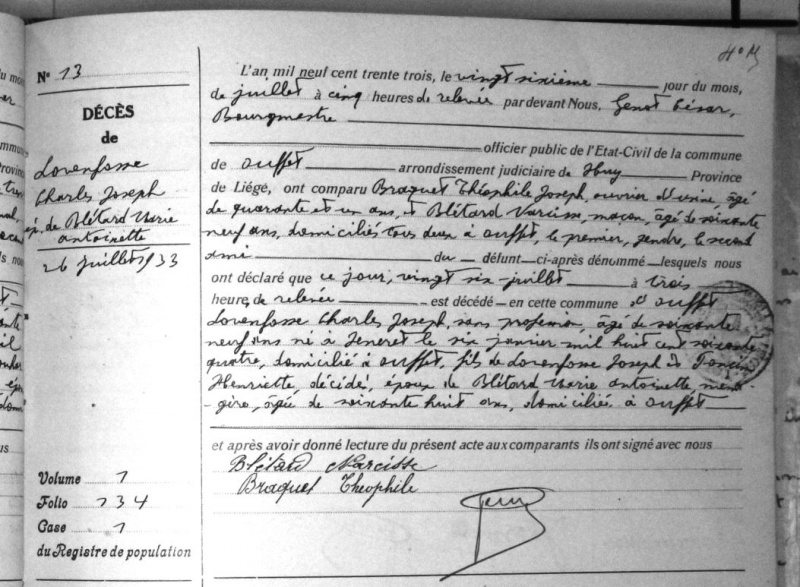 Nº 13
DÉCÈS
de
Lovenfosse
Charles Joseph
ép. de Blétard Marie
antoinette
26 juillet 1933
Volume 1
Folio 134
Case 1
du Registre de population
L'an mil neuf cent trente trois, le vingt sixième jour du mois,
de juillet à cinq heures de relevée par devant Nous, Genot César,
Bourgmestre
officier public de l'Etat-Civil de la commune
de Ouffet arrondissement judiciaire de Huy Province
de Liégé, ont comparu Braquet Théophile Joseph, ouvrier d'usine, âgé
de quarante et un ans, et Blétard Narcisse, maçon, âgé de soixante
neuf ans, domiciliés tous deux à Ouffet, le premier, gendre, le second
ami du défunt ci-après dénommé lesquels nous
ont déclaré que ce jour, vingt six juillet à trois
heure, de relevée est décédé en cette commune d'Ouffet
Lovenfosse Charles Joseph, sans profession, âgé de soixante
neuf ans né à Jeneret le six janvier mil huit cent soixante
quatre, domicilié à Ouffet, fils de Lovenfosse Joseph et
Henriette, décédés, époux de Blétard Marie antoinette ména-
-gère, âgée de soixante huit ans, domiciliée à Ouffet
et après avoir donné lecture du présent acte aux comparants ils ont signé avec nous
Blétard Narcisse
Braquet Théophile